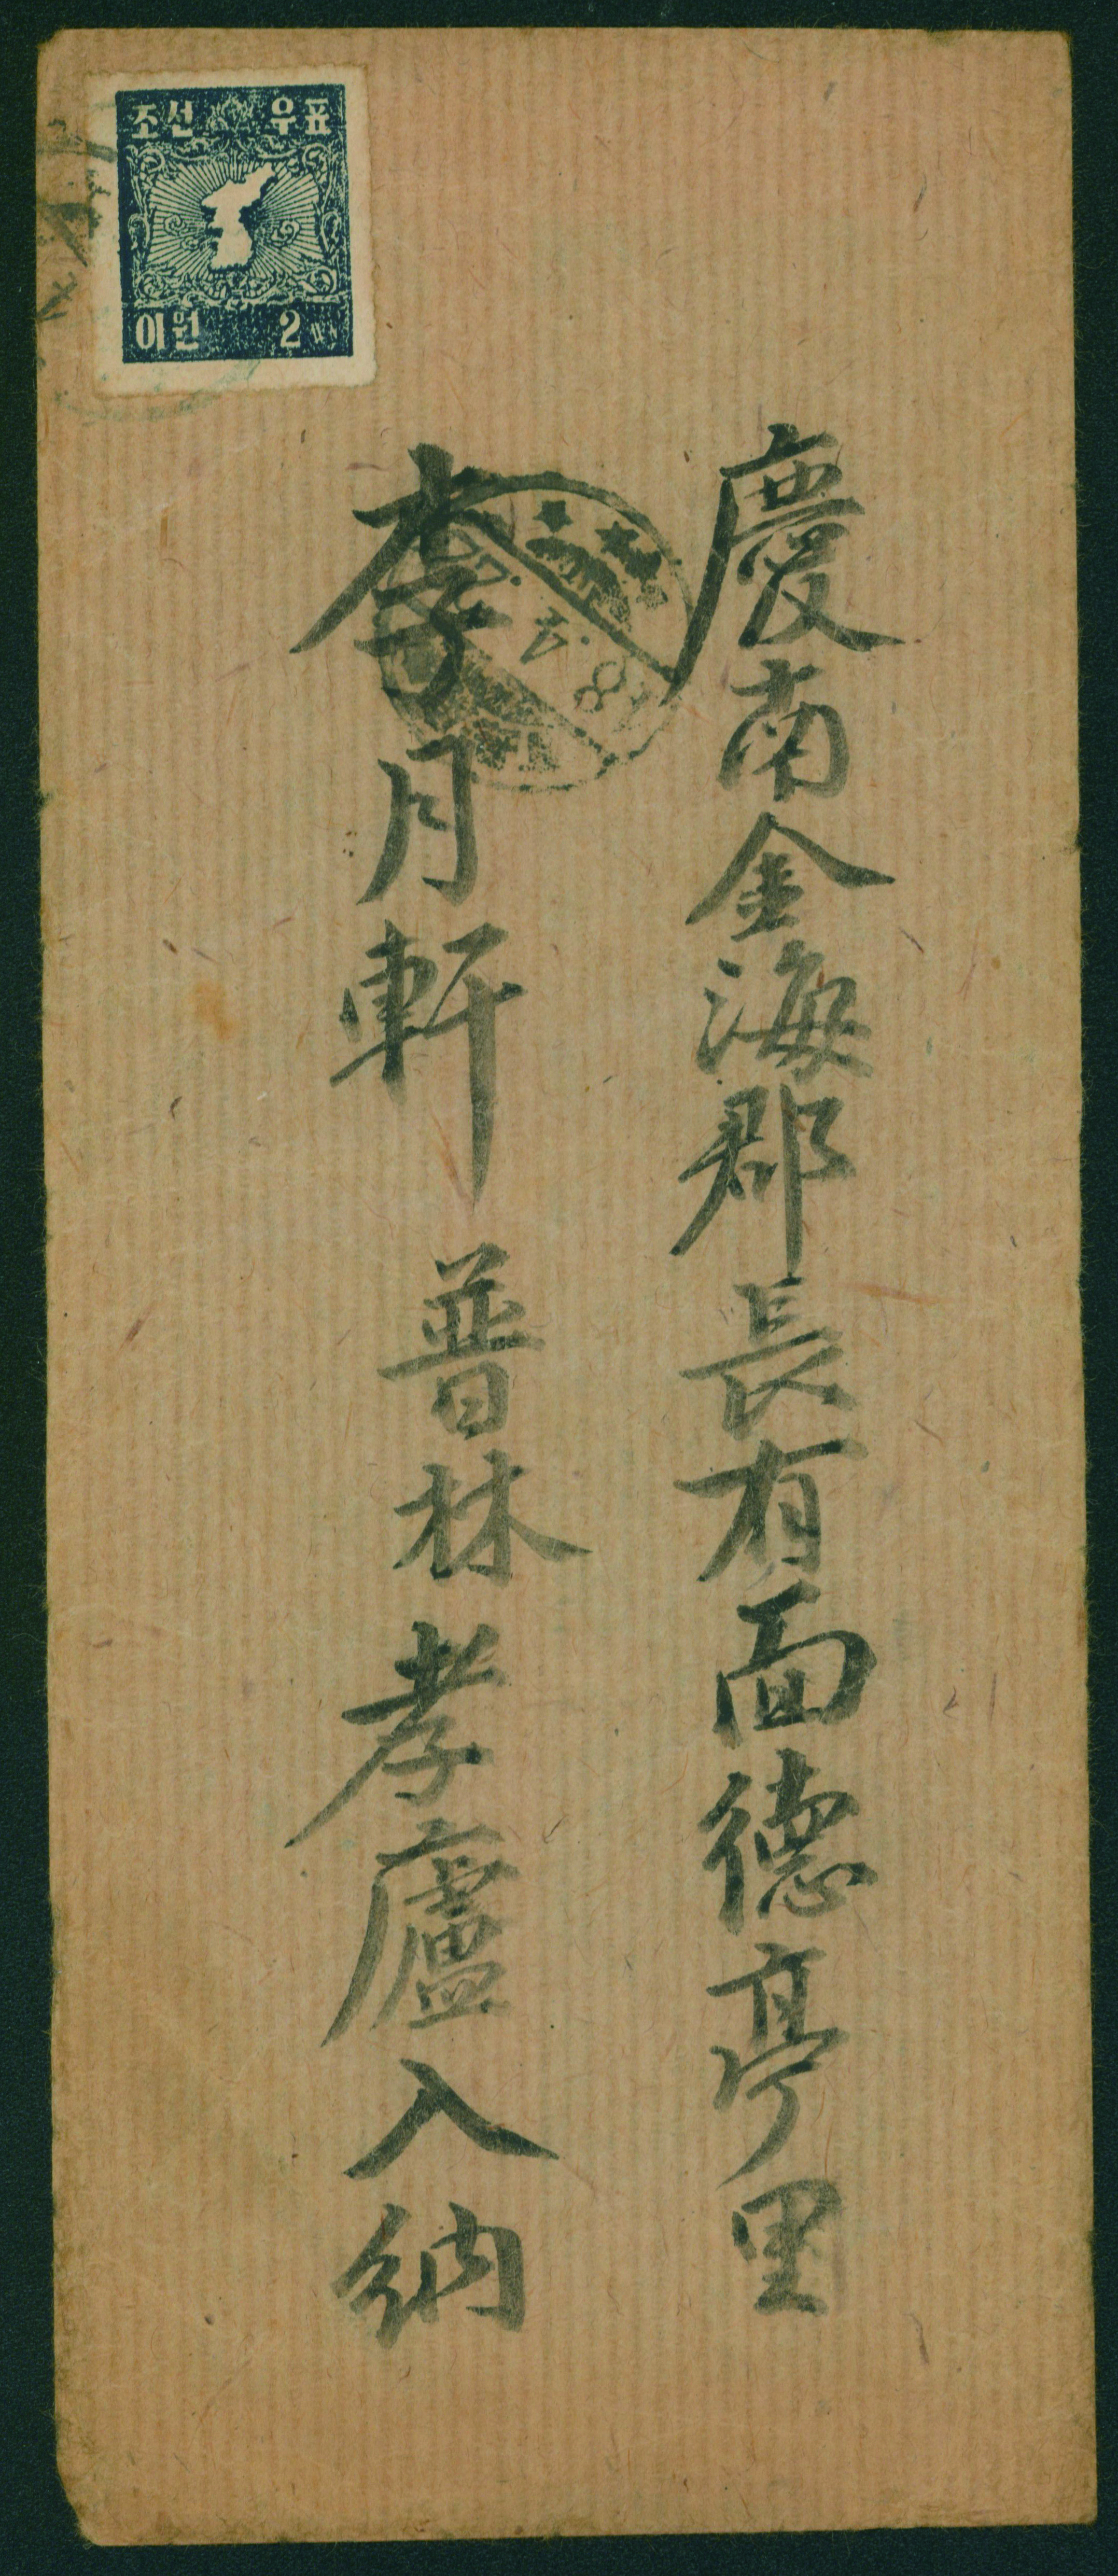 조선 우표
이원 2
慶南金海郡長有面德亭里
李月軒 普林 孝廬入納